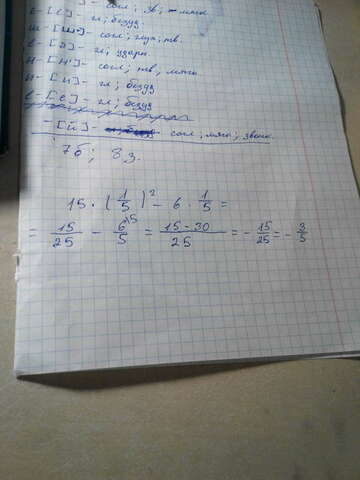 е-[э]- гл; безуд
ш-[ш]- согл; глух; тв.
е-[э]- гл; ударн.
н-[н']- согл; тв, мягк.
и-[и]- гл; безуд
е-[е]- гл; безуд
-[й]- согл; мягк; звонк.
7б; 8з.
15 · (1/5)² - 6 · 1/5 =
= 15/25 - 6/5 ^15 = 15-30/25 = - 15/25 = - 3/5